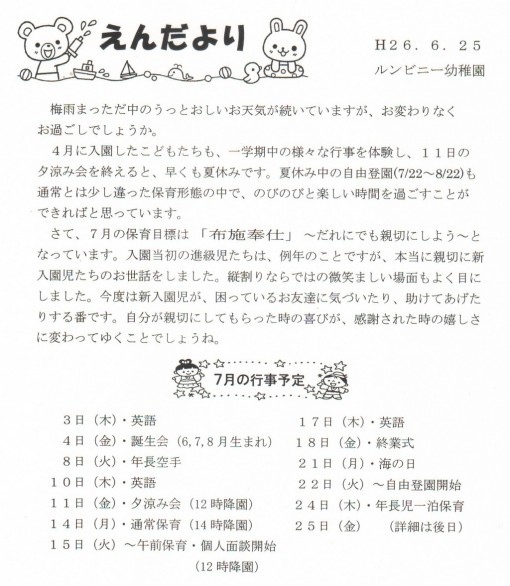 えんだより
H26.6.25
ルンビニー幼稚園
梅雨まっただ中のうっとおしいお天気が続いていますが、お変わりなく
お過ごしでしょうか。
4月に入園したこどもたちも、一学期中の様々な行事を体験し、11日の
夕涼み会を終えると、早くも夏休みです。夏休み中の自由登園(7/22～8/22)も
通常とは少し違った保育形態の中で、のびのびと楽しい時間を過ごすことが
できればと思っています。
さて、7月の保育目標は「布施奉仕」～だれにでも親切にしよう～と
なっています。入園当初の進級児たちは、例年のことですが、本当に親切に新
入園児たちのお世話をしました。縦割りならではの微笑ましい場面もよく目に
しました。今度は新入園児が、困っているお友達に気づいたり、助けてあげた
りする番です。自分が親切にしてもらった時の喜びが、感謝された時の嬉しさ
に変わってゆくことでしょうね。
7月の行事予定
3日（木）・英語
4日（金）・誕生会（6,7,8月生まれ）
8日（火）・年長空手
10日（木）・英語
11日（金）・夕涼み会（12時降園）
14日（月）・通常保育（14時降園）
15日（火）～午前保育・個人面談開始
（12時降園）
17日（木）・英語
18日（金）・終業式
21日（月）・海の日
22日（火）～自由登園開始
24日（木）・年長児一泊保育
25日（金）　（詳細は後日）